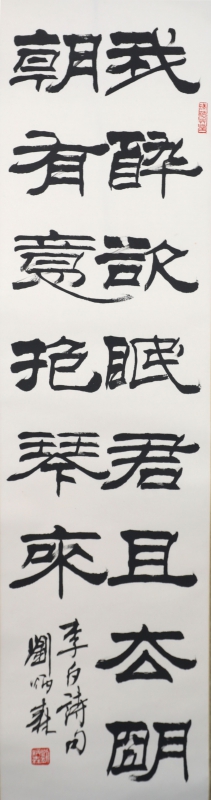 我醉欲眠君且去明
朝有意抱琴來
李白詩句
劉炳森